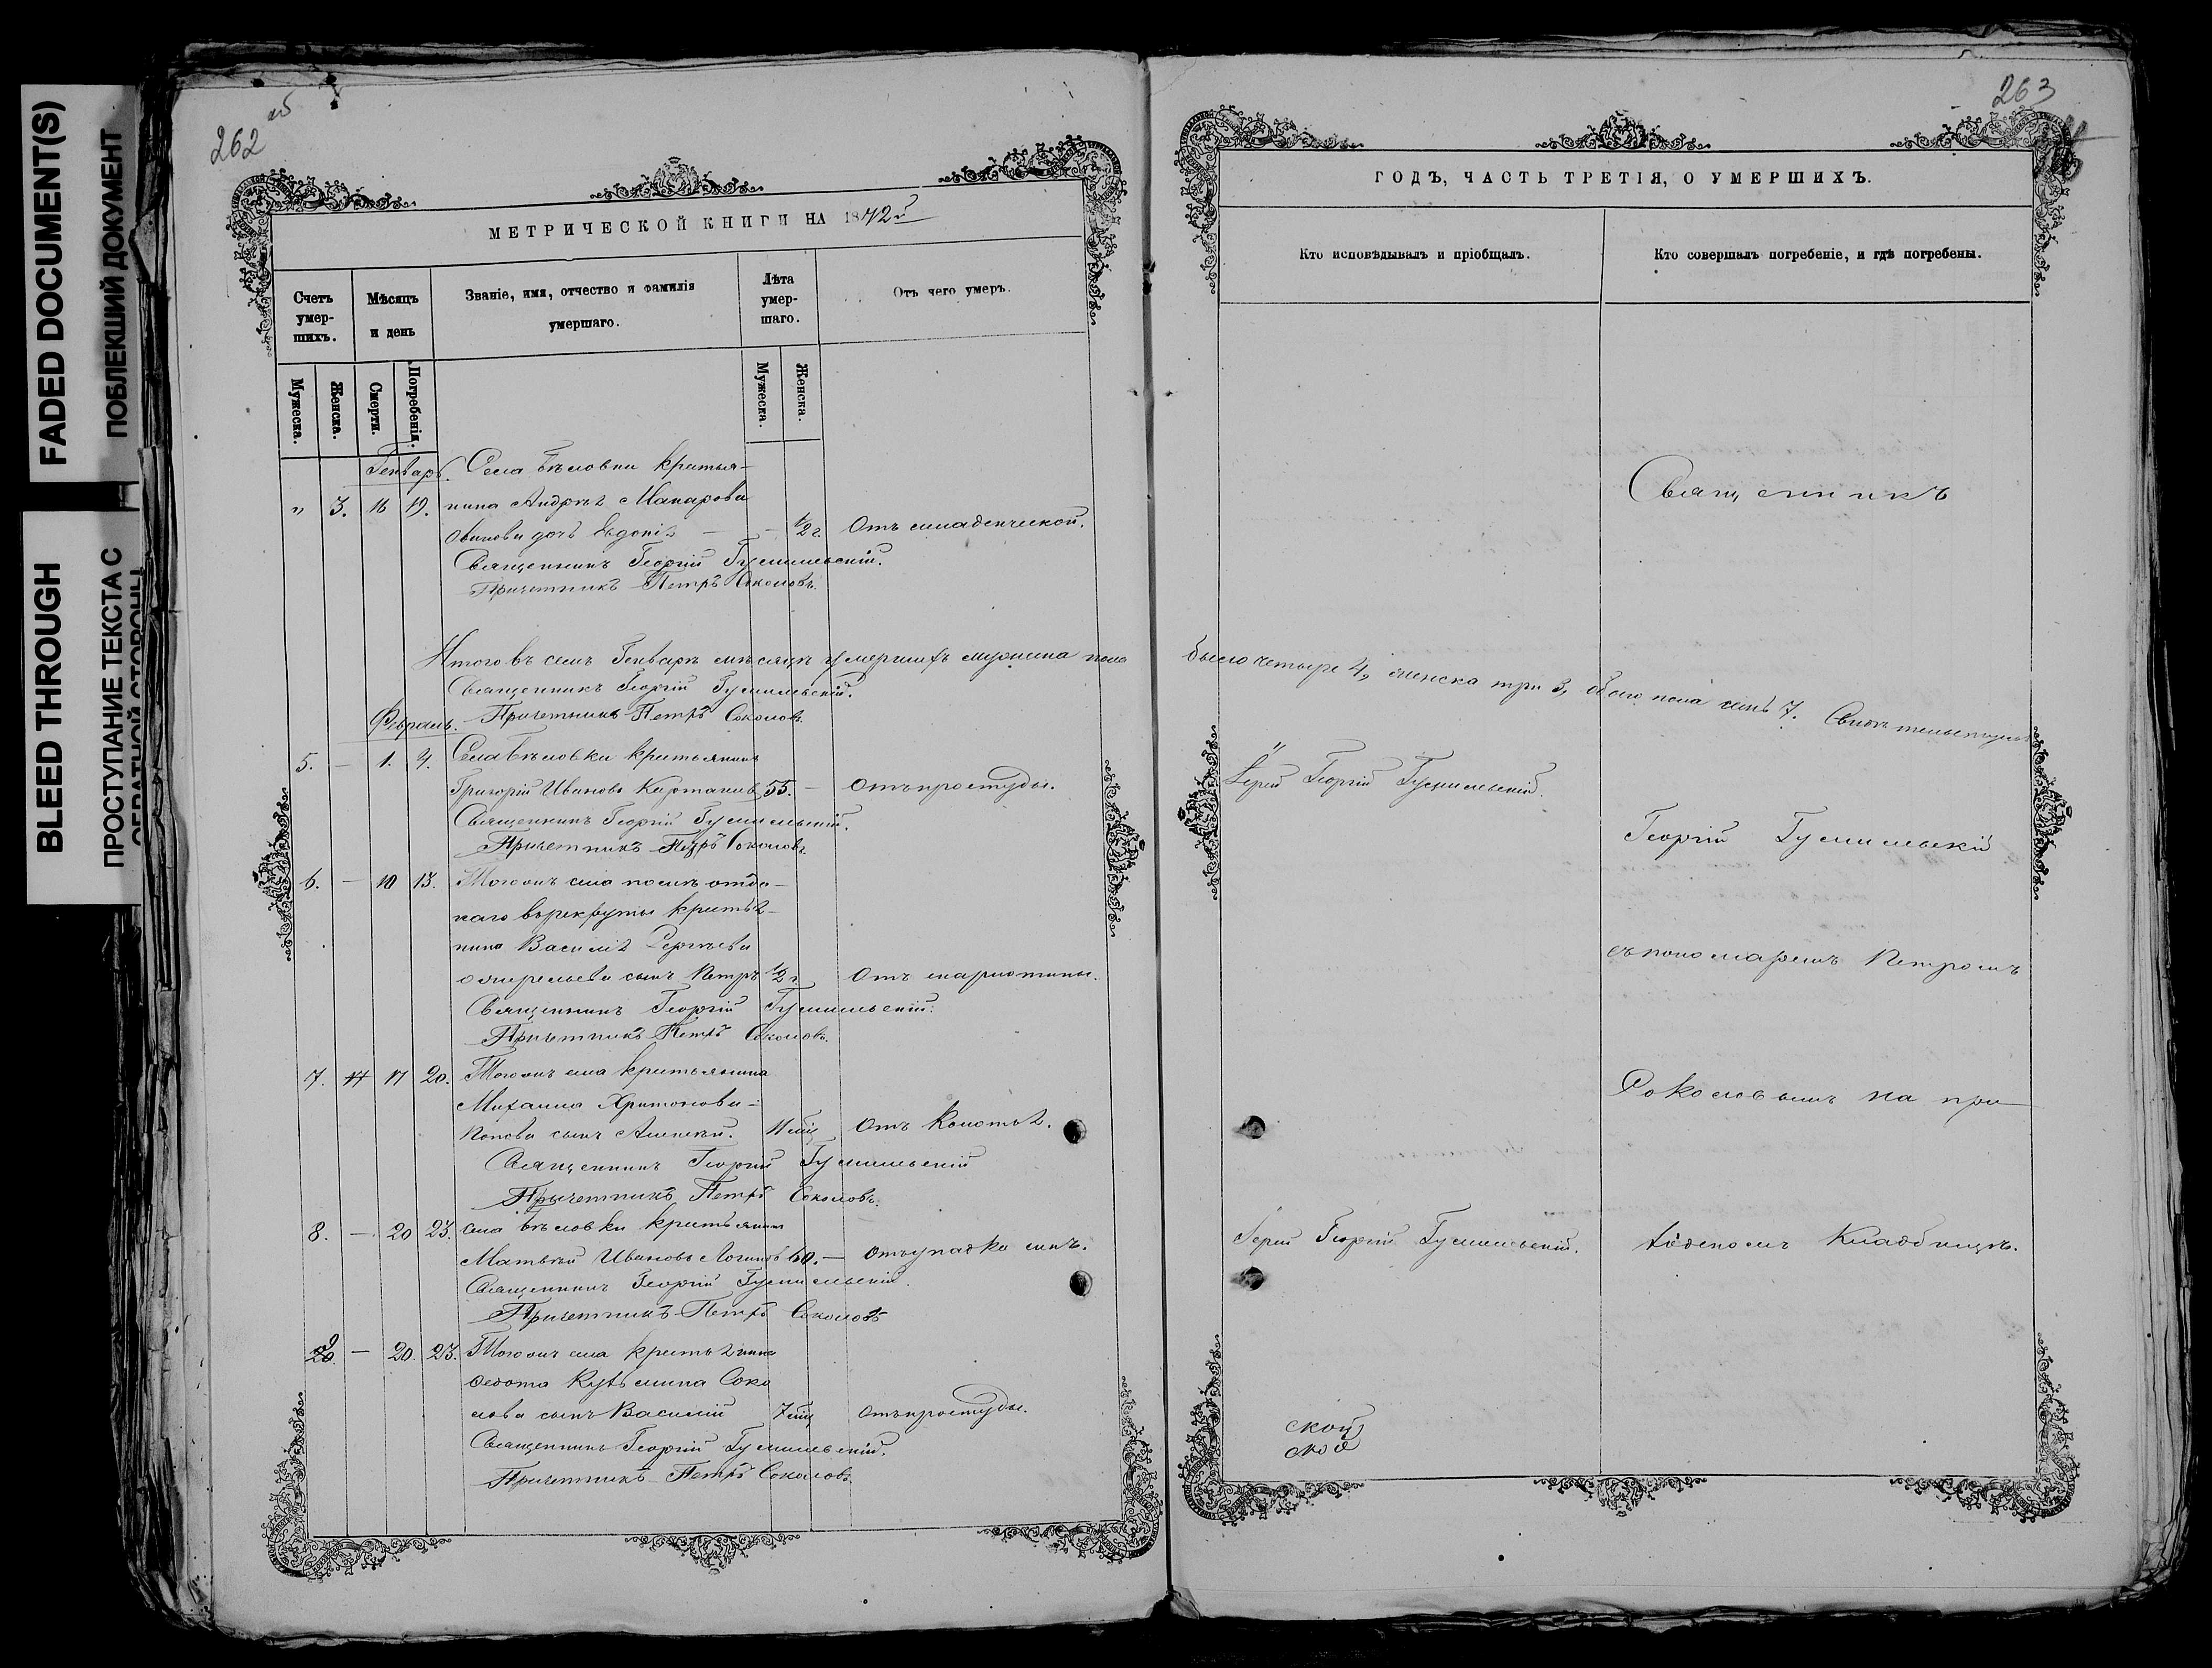 FADED DOCUMENT(S)
ПОБЛЕКШИЙ ДОКУМЕНТ
BLEED THROUGH
ПРОСТУПАНИЕ ТЕКСТА С
ОБРАТНОЙ СТОРОНЫ
262
МЕТРИЧЕСКОЙ КНИГИ НА 1872й
Счетъ умер-шихъ.
Мѣсяцъ и день
Званіе, имя, отчество и фамилія умершаго.
Лѣта умер-шаго.
Отъ чего умеръ.
Мужеска.
Женска.
Смерти.
Погребенія.
Мужеска.
Женска.
Генварь. Села Бѣловки крестья-
" 3. 16 19. нина Андрея Макарова
дочь Евдокія — - 1/2 г. Отъ младенческой.
Священникъ Георгій Гумилевскій.
Причетникъ Петръ Соколовъ.
Итого въ семъ Генварѣ мѣсяцѣ умершихъ мужеска пола
Священникъ Георгій Гумилевскій.
Февраль. Причетникъ Петръ Соколовъ.
5. — 1. 4. Села Бѣловки крестьянинъ
Григорій Ивановъ 55. — Отъ простуды.
Священникъ Георгій Гумилевскій.
Причетникъ Петръ Соколовъ.
6. — 10 13. Тогожъ села послѣ отдан-
наго въ рекруты крестья-
нина Василія Сергѣева
сынъ Петръ 1/2 г. Отъ
Священникъ Георгій Гумилевскій.
Причетникъ Петръ Соколовъ.
7. 17 20. Тогожъ села крестьянина
Михаила Харитонова
Попова сынъ Алексѣй. 11 мѣс. Отъ
Священникъ Георгій Гумилевскій
Причетникъ Петръ Соколовъ.
8. — 20 23. Села Бѣловки крестьянинъ
Матвѣй Ивановъ Логиновъ 60. — Отъ упадка силъ.
Священникъ Георгій Гумилевскій.
Причетникъ Петръ Соколовъ
9 — 20. 23. Тогожъ села крестьянина
Федота Кузьмина Соко
лова сынъ Василій 7 мѣс. Отъ простуды.
Священникъ Георгій Гумилевскій.
Причетникъ Петръ Соколовъ.
263
ГОДЪ, ЧАСТЬ ТРЕТІЯ, О УМЕРШИХЪ.
Кто исповѣдывалъ и пріобщалъ.
Кто совершалъ погребеніе, и гдѣ погребены.
Священникъ
было четыре 4, женска три 3, обоего пола семь 7.
Іерей Георгій Гумилевскій.
Георгій Гумилевскій
съ пономаремъ Петромъ
Соколовымъ на при-
Іерей Георгій Гумилевскій.
ходскомъ кладбищѣ.
ской
ской